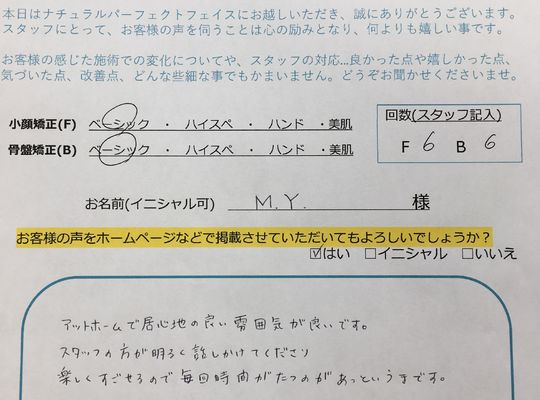 本日はナチュラルパーフェクトフェイスにお越しいただき、誠にありがとうございます。
スタッフにとって、お客様の声を伺うことは心の励みとなり、何よりも嬉しい事です。
お客様の感じた施術での変化についてや、スタッフの対応…良かった点や嬉しかった点、
気づいた点、改善点、どんな些細な事でもかまいません。どうぞお聞かせくださいませ。
小顔矯正(F) ベーシック ・ ハイスペ ・ ハンド ・美肌
骨盤矯正(B) ベーシック ・ ハイスペ ・ ハンド ・美肌
回数(スタッフ記入)
F 6 B 6
お名前(イニシャル可) M.Y. 様
お客様の声をホームページなどで掲載させていただいてもよろしいでしょうか？
☑はい ☐イニシャル ☐いいえ
アットホームで居心地の良い雰囲気が良いです。
スタッフの方が明るく話しかけてくださり
楽しくすごせるので毎回時間がたつのがあっというまです。